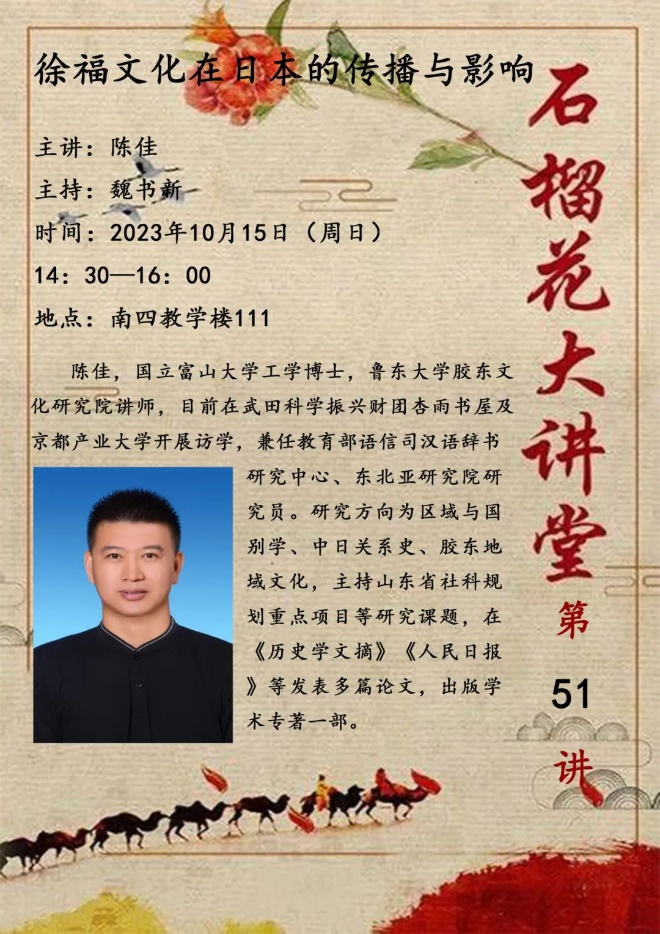 徐福文化在日本的传播与影响
主讲：陈佳
主持：魏书新
时间：2023年10月15日（周日）
14：30—16：00
地点：南四教学楼111
陈佳，国立富山大学工学博士，鲁东大学胶东文
化研究院讲师，目前在武田科学振兴财团杏雨书屋及
京都产业大学开展访学，兼任教育部语信司汉语辞书
研究中心、东北亚研究院研
究员。研究方向为区域与国
别学、中日关系史、胶东地
域文化，主持山东省社科规
划重点项目等研究课题，在
《历史学文摘》《人民日报
》等发表多篇论文，出版学
术专著一部。
石榴花大讲堂
第
51
讲